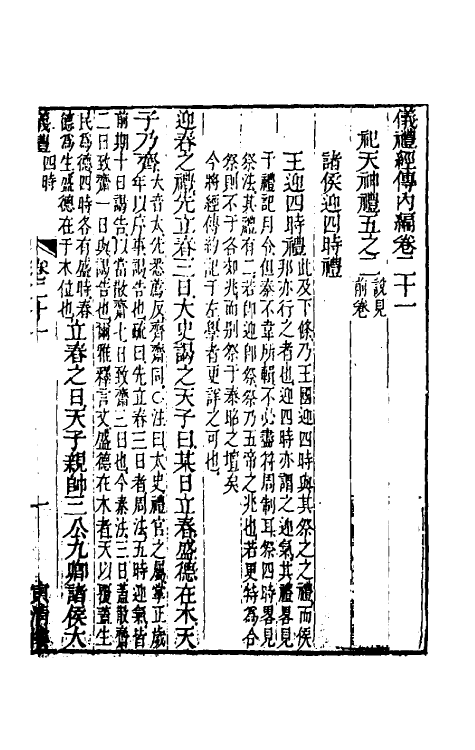 儀禮經傳內編卷二十一
祀天神禮五之二 說見前卷
諸侯迎四時禮
王迎四時禮 此及下條乃王國迎四時與其祭之之禮而侯
邦亦行之者也迎四時亦謂之迎氣其禮畧見
于禮記月令但秦不韋所輯不必盡符周制耳祭四時畧見
祭法其禮有二若即迎即祭祭乃五帝之兆也若更特為合
祭則不于各如兆而别祭于泰昭之壇矣
今將經傳約記于左學者更詳之可也
迎春之禮先立春三日大史謁之天子曰某日立春盛德在木天
子乃齊 大音太先悉薦反齊齋同○注曰太史禮官之屬掌正歲
年以序事謁告也疏曰先立春三日者周法五時迎氣皆
前期十日謁告以當散齋七日致齋三日也今秦法三日蓋散齋
二日致齋一日與謁告也爾雅釋言文盛德在木者天以覆蓋生
民為德四時各有盛時春
德為生盛德在于木位也 立春之日天子親帥三公九卿諸侯大
儀禮 四時 卷二十一 一